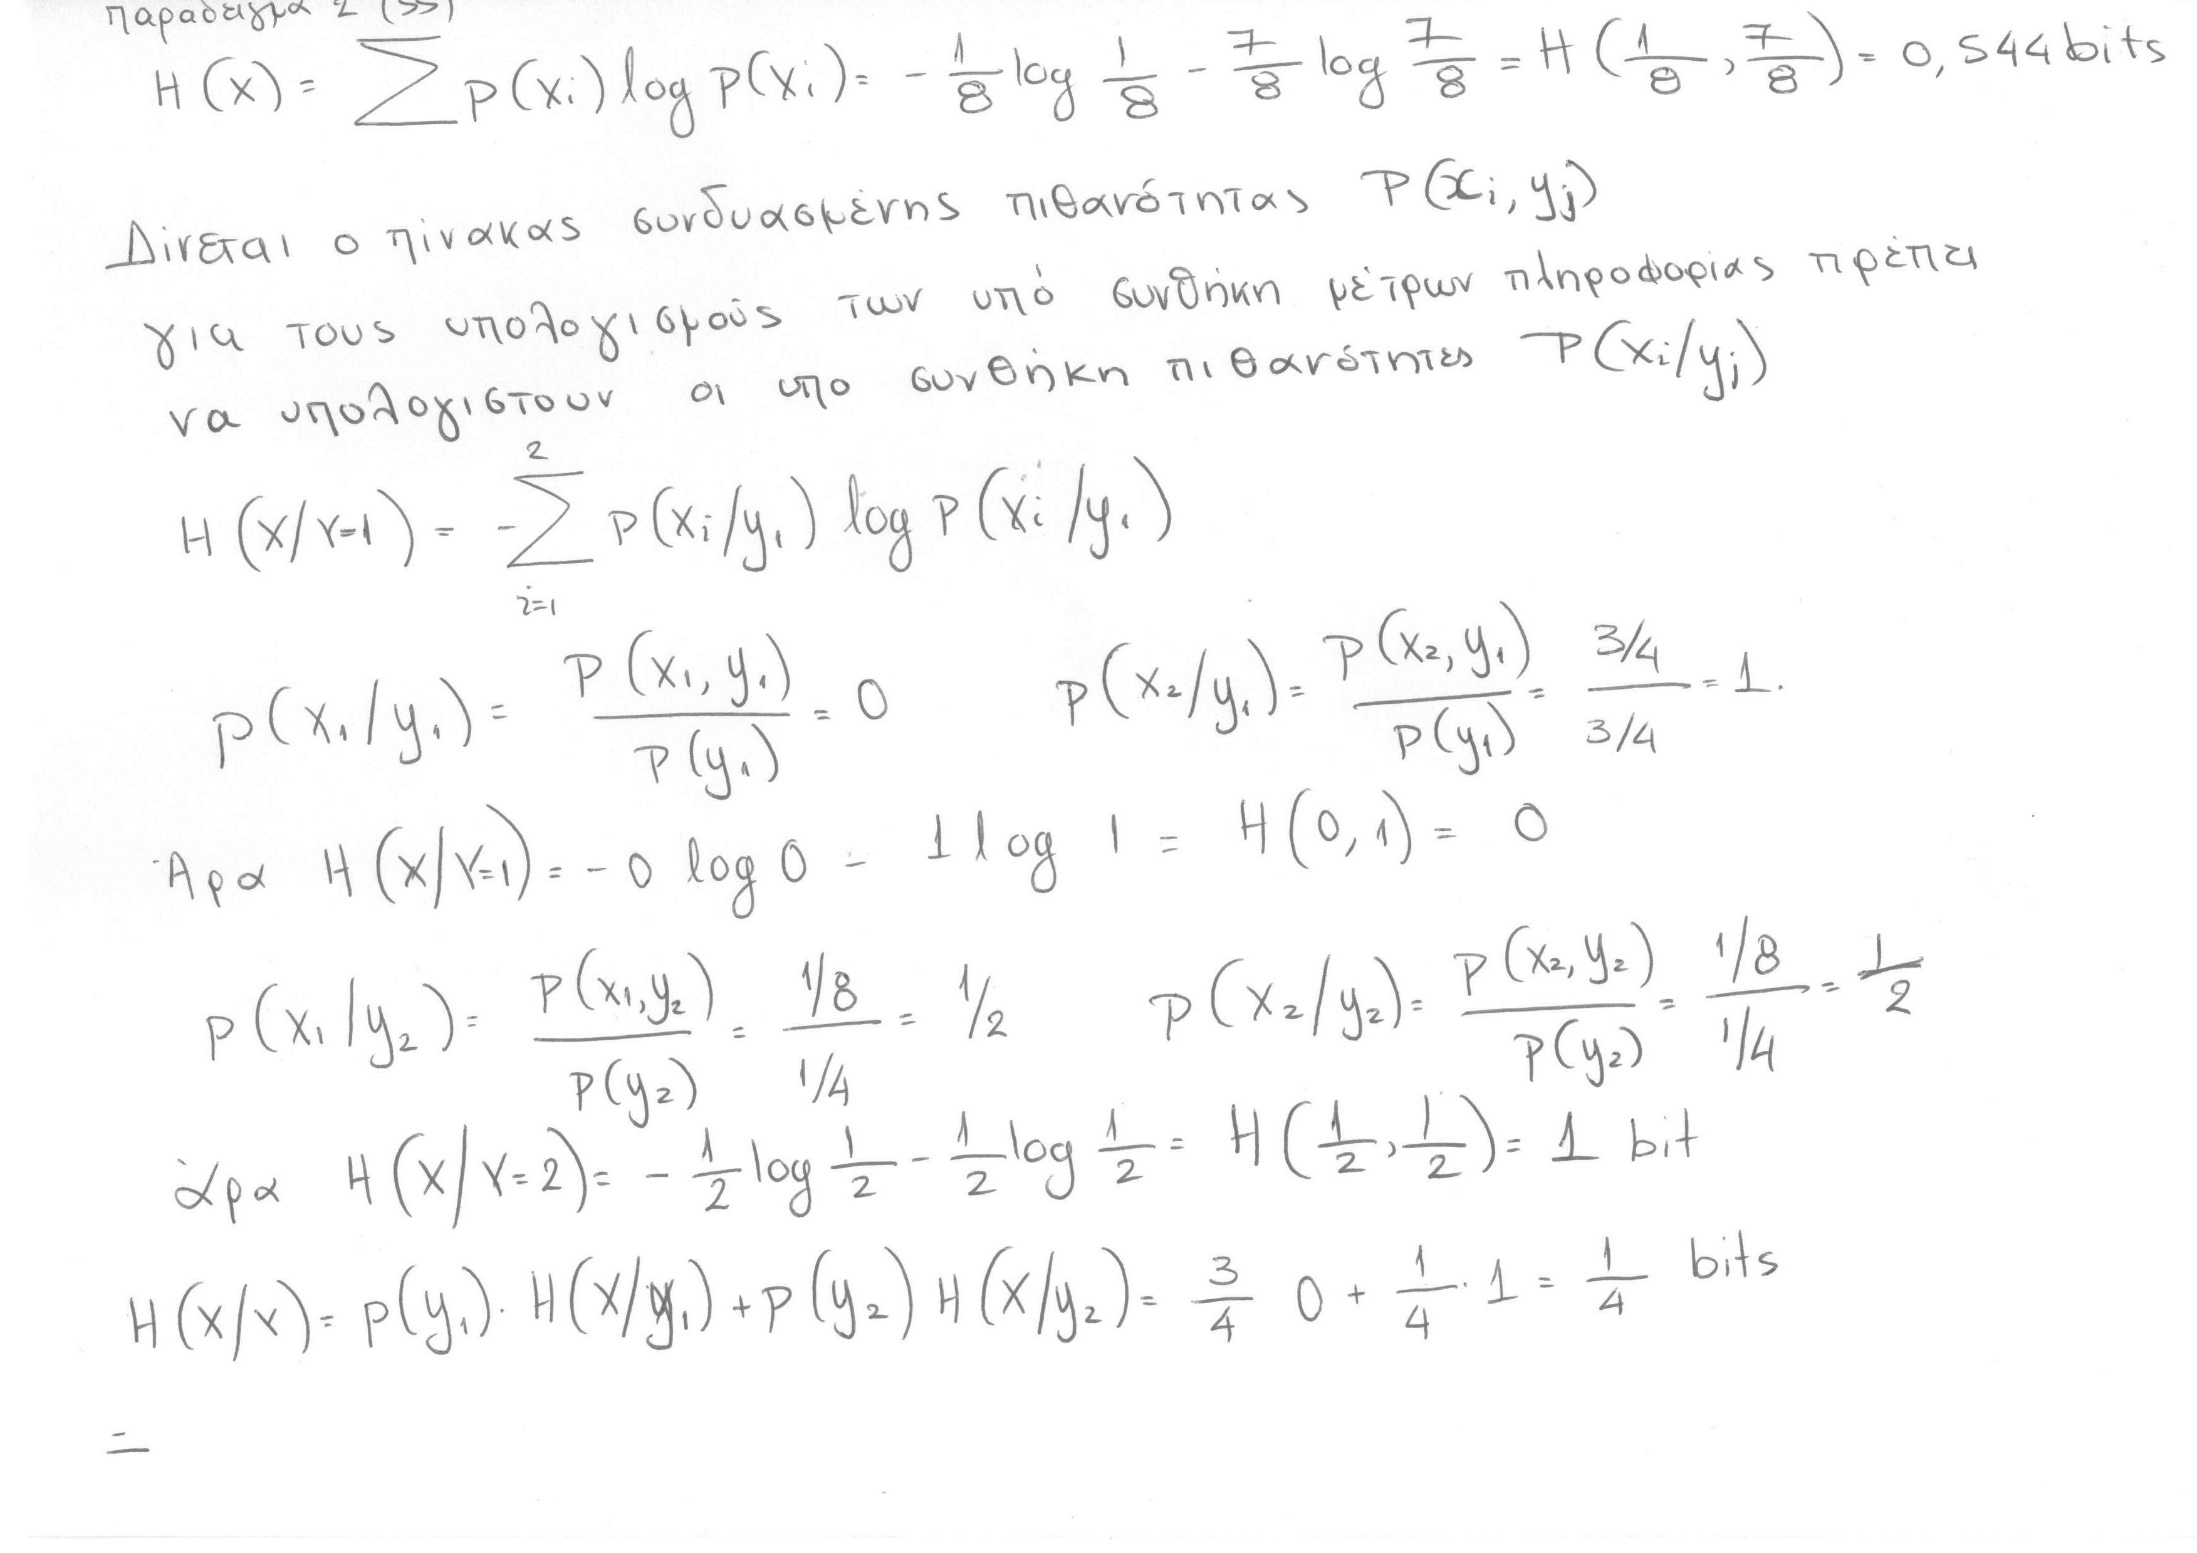 παραδειγμα 2 (55)
H(X) = ∑ p(xi) log p(xi) = - 1/8 log 1/8 - 7/8 log 7/8 = H(1/8, 7/8) = 0,544 bits
Δίνεται ο πίνακας συνδυασμένης πιθανότητας P(xi, yj)
για τους υπολογισμούς των υπό συνθήκη μέτρων πληροφορίας πρέπει
να υπολογιστουν οι υπο συνθήκη πιθανότητες P(xi/yj)
H(X/Y=1) = - ∑_{i=1}^{2} p(xi/y1) log p(xi/y1)
p(x1/y1) = p(x1, y1) / p(y1) = 0 p(x2/y1) = p(x2, y1) / p(y1) = 3/4 / 3/4 = 1.
Άρα H(X/Y=1) = - 0 log 0 - 1 log 1 = H(0, 1) = 0
p(x1/y2) = p(x1, y2) / p(y2) = 1/8 / 1/4 = 1/2 p(x2/y2) = p(x2, y2) / p(y2) = 1/8 / 1/4 = 1/2
άρα H(X/Y=2) = - 1/2 log 1/2 - 1/2 log 1/2 = H(1/2, 1/2) = 1 bit
H(X/Y) = p(y1) · H(X/y1) + p(y2) H(X/y2) = 3/4 0 + 1/4 · 1 = 1/4 bits
=